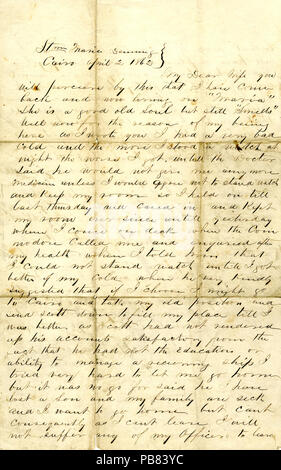 Stmr Maria Denning
Cairo April 2 1862
My Dear Wife you
will percieve by this that I have come
back and now living on "Maria"
She is a good old Soul but still "Smells"
Well now for the reason of my being
here as I wrote you I had a very bad
Cold and the more I stood a watch at
night the worse I got, untill the Doctor
Said he would not give me any more
medicine unless I would agree not to Stand watch
and Keep my room so I held on till
last thursday and Caved in and Kept
my room ever since untill yesterday
when I came on deck when the Com
modore Called me and enquired after
my health when I told him that I
Could not stand watch untill I got
better of my Cold when he very kindly
suggested that if I choose I might go
to Cairo and take my old position and
send Scott down to fill my place till I
was better as Scott had not rendered
up his accounts satisfactory from the
fact that he had not the Education or
ability to manage a recieving ship I
tried very hard to let me go home
but it was no go for said he I have
lost a Son and my family are sick
and I want to go home but cant
consequently as I cant leave I will
not suffer any of my Officers to leave
alamy
PB83YC